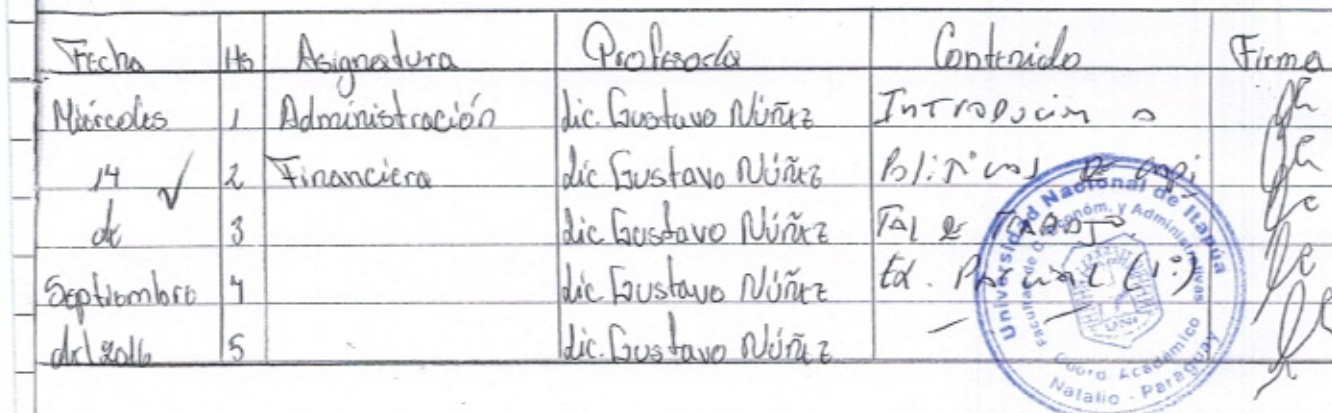 Fecha Hs Asignatura Profesor/a Contenido Firma
Miércoles 1 Administración Lic. Gustavo Núñez Introducción a
14 2 Financiera Lic. Gustavo Núñez Políticas de capi
de 3 Lic. Gustavo Núñez tal de trabajo.
Septiembre 4 Lic. Gustavo Núñez Ex. Parcial (1º)
del 2016 5 Lic. Gustavo Núñez
Universidad Nacional de Itapúa
Facultad de C. Económ. y Administrativas
UNI
Coord. Académico
Natalio - Paraguay